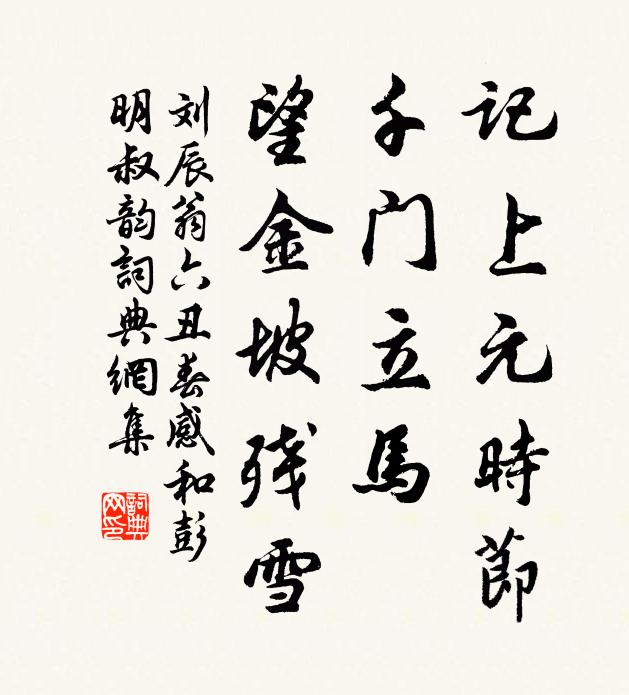 記上元時節
千門立馬
望金坡残雪
刘辰翁六丑春感和彭
明叔韵詞典網集
詞典网印